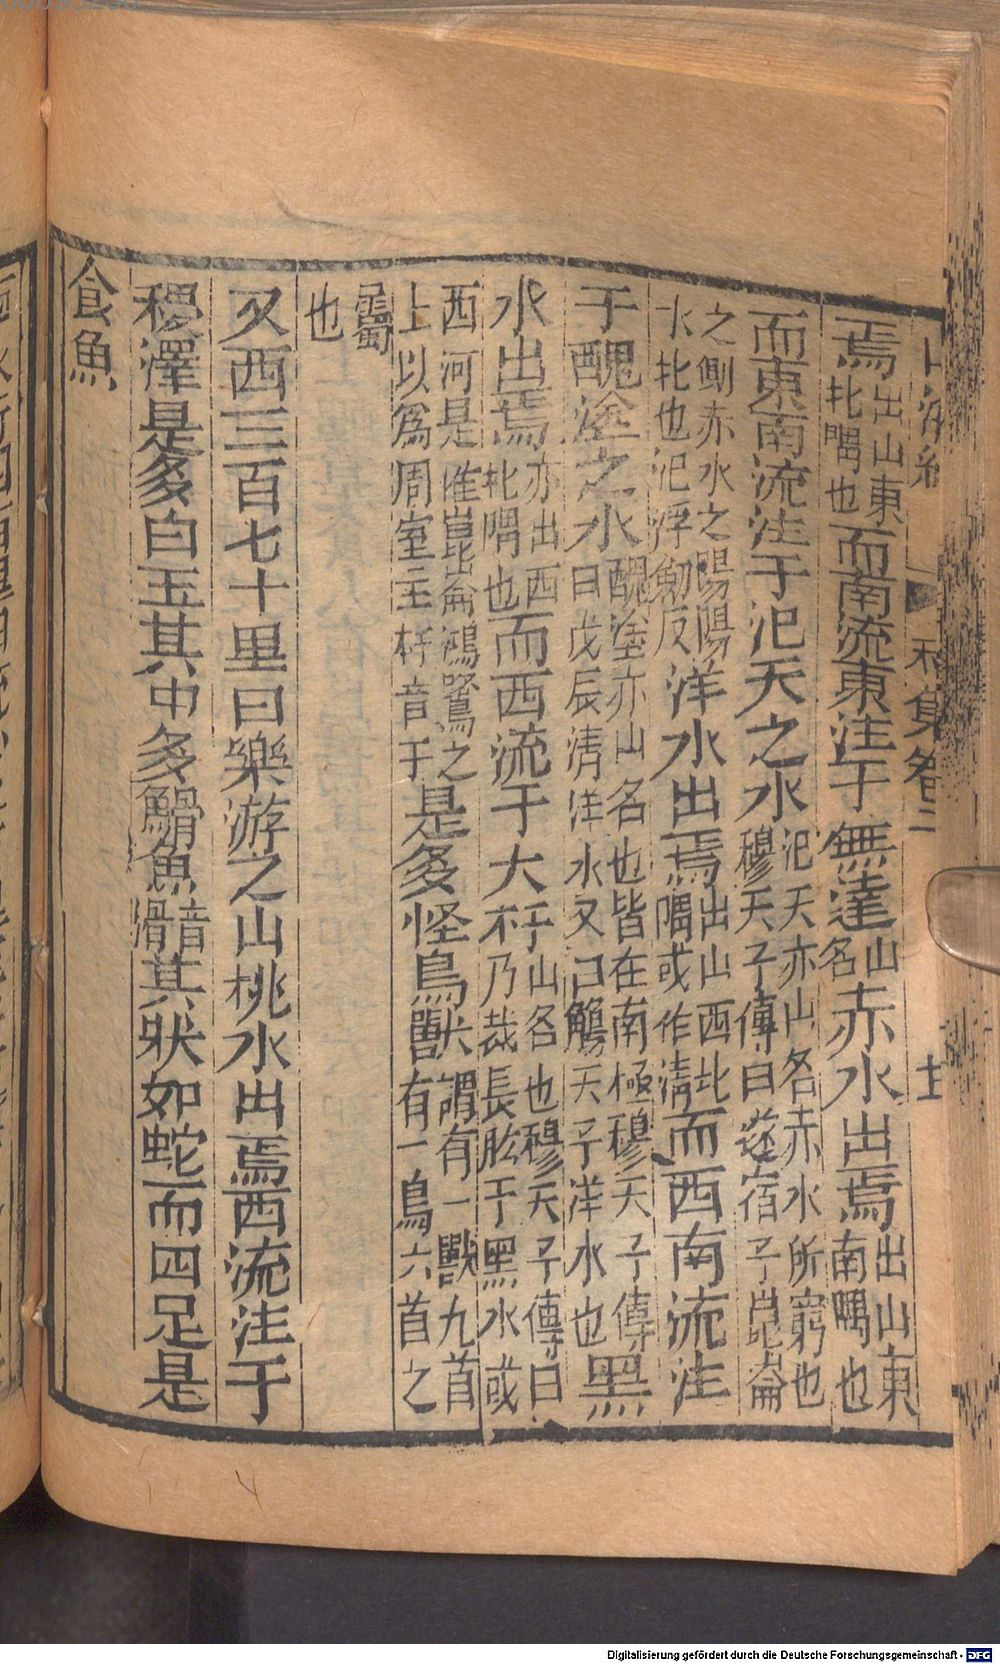 焉出山東北隅也而南流東注于無達山名赤水出焉出山東南隅也
而東南流注于汜天之水汜天亦山名赤水所窮也穆天子傳曰遂宿于崑崙
之側赤水之陽陽水北也汜浮劒反洋水出焉出山西北隅或作清而西南流注
于醜塗之水醜塗亦山名也皆在南極穆天子傳曰戊辰濟洋水又曰觴天子洋水也黑
水出焉亦出西北隅也而西流于大杅山名也穆天子傳曰乃裁長肱于黑水或
西河是惟崑崙鴻鷺之上以爲周室主杅音于是多怪鳥獸謂有一獸九首有一鳥六首之
屬也
又西三百七十里曰樂游之山桃水出焉西流注于
稷澤是多白玉其中多䱻魚音滑其狀如蛇而四足是
食魚
和集卷二
Digitalisierung gefördert durch die Deutsche Forschungsgemeinschaft - DFG